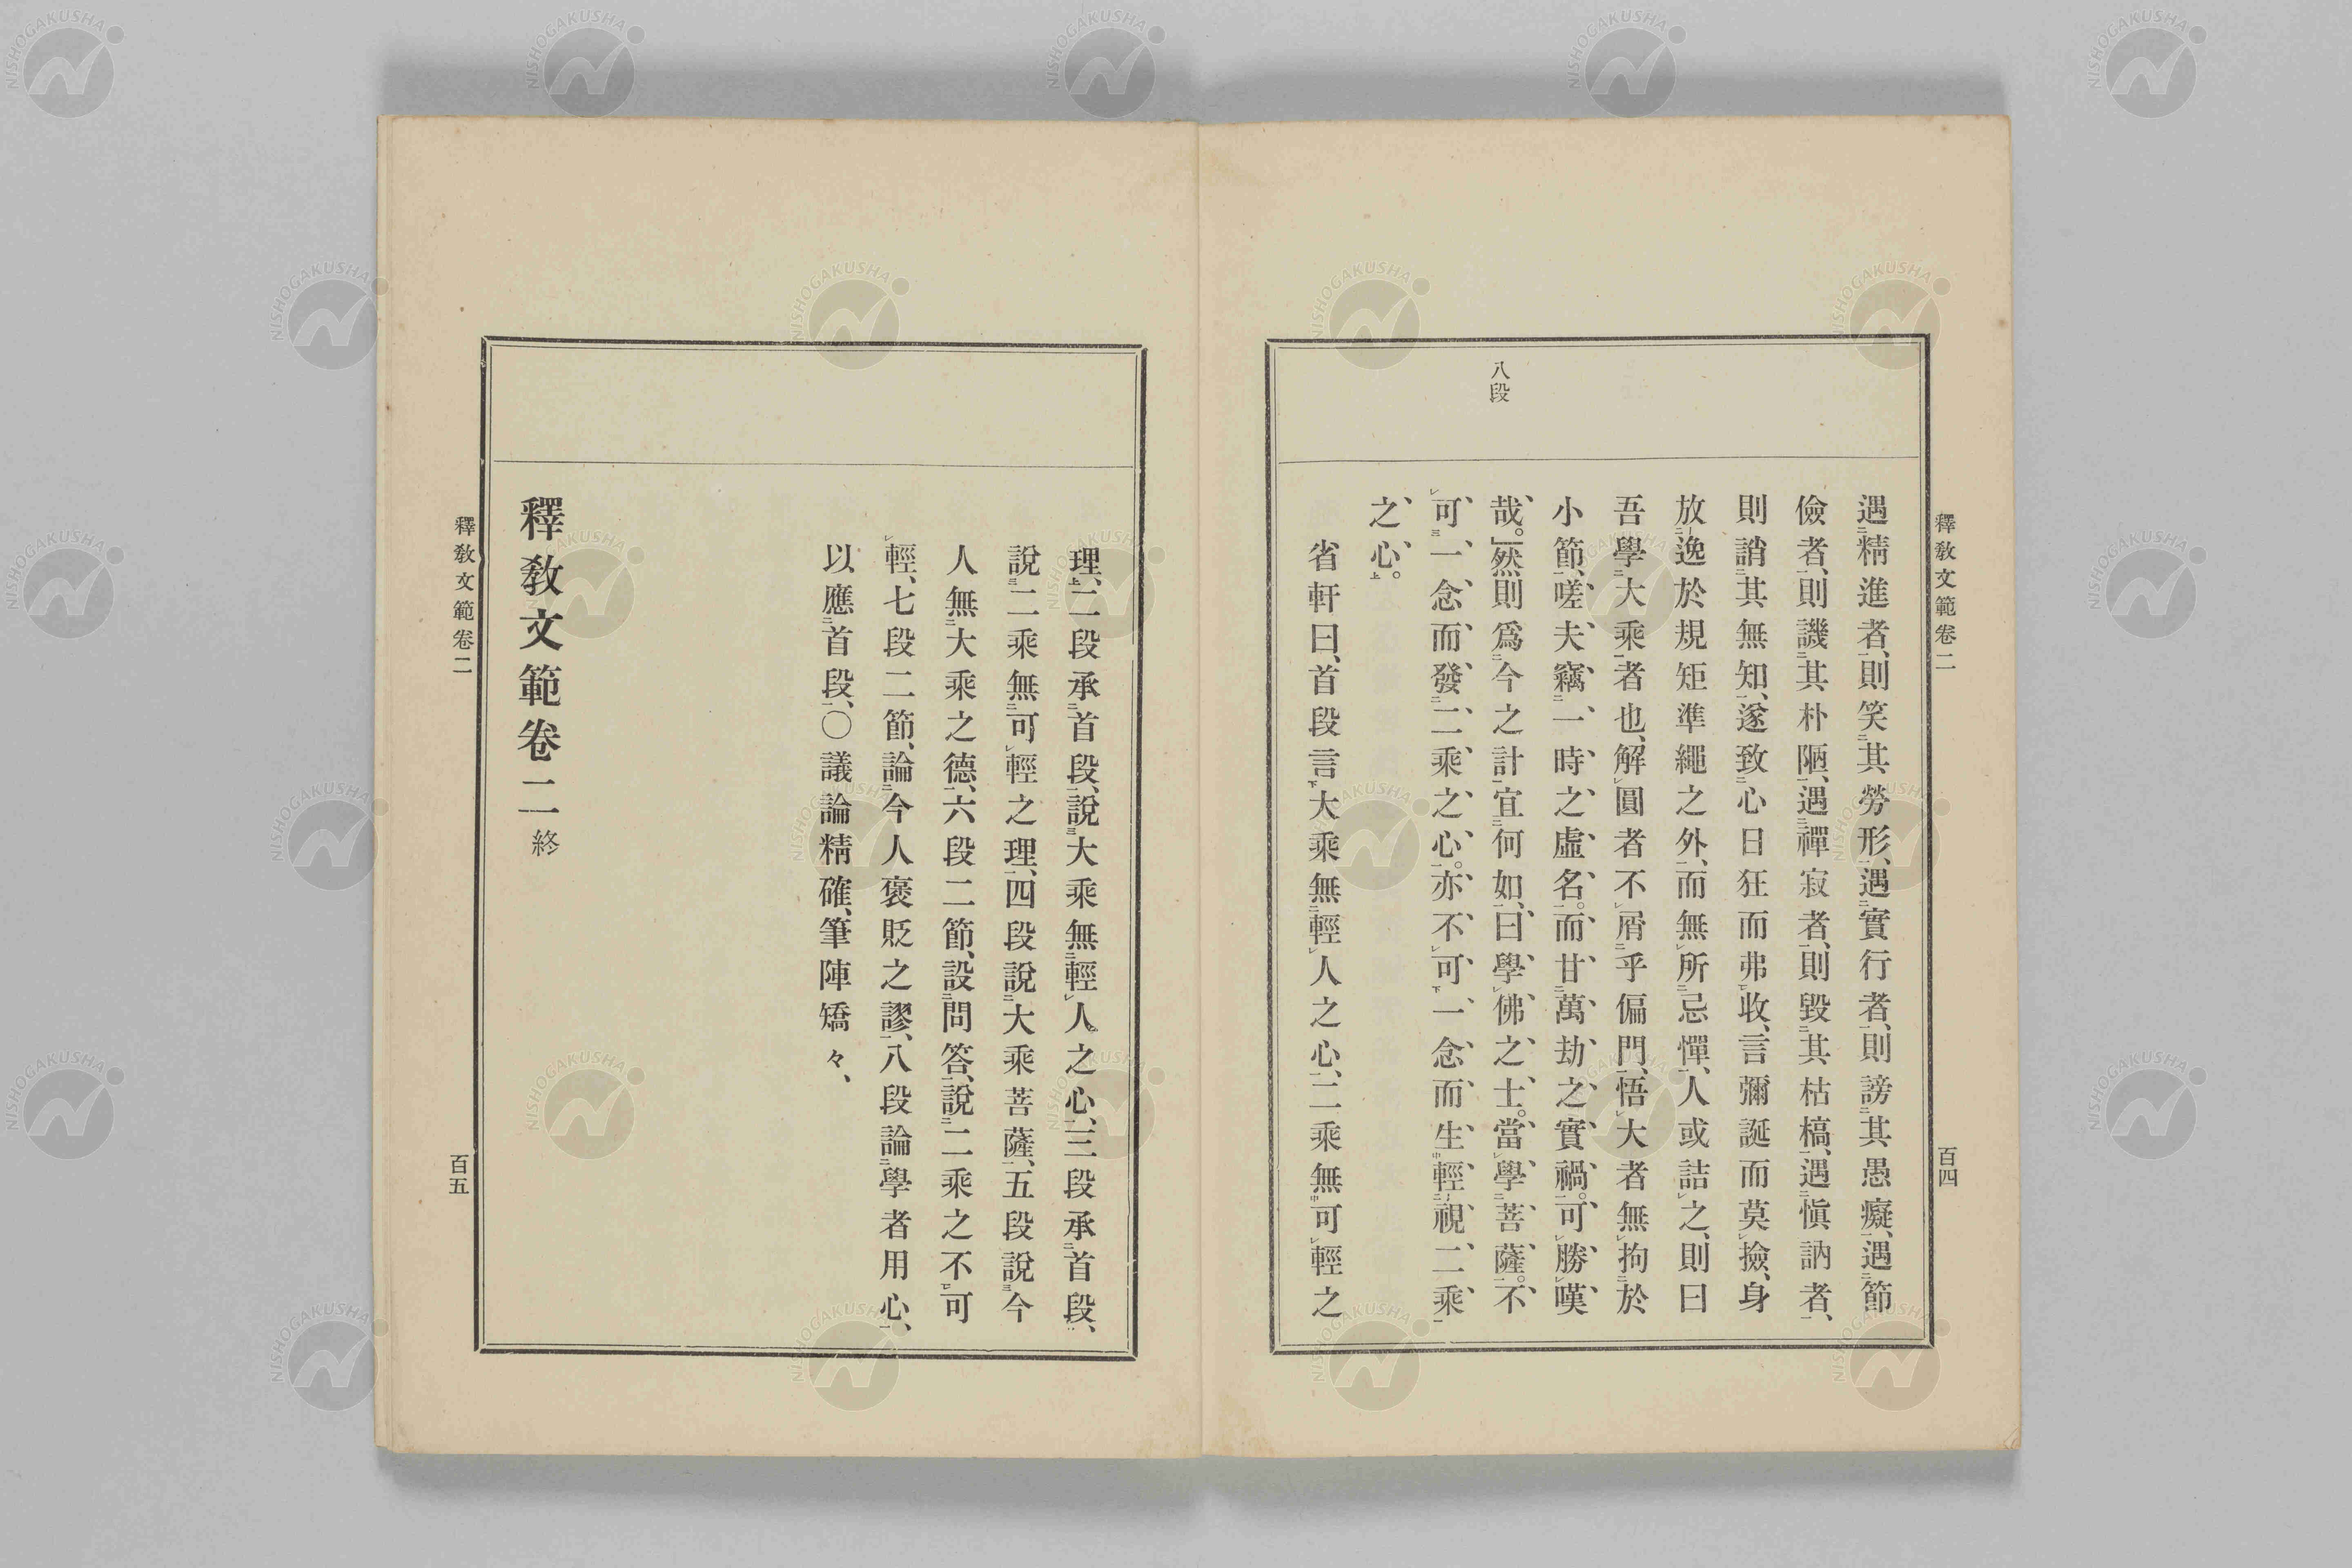 釋教文範卷二
百四
八段
遇精進者、則笑其勞形、遇實行者、則謗其愚癡、遇節
儉者、則譏其朴陋、遇禪寂者、則毀其枯槁、遇愼訥者、
則誚其無知、遂致心日狂而弗收、言彌誕而莫撿、身
放逸於規矩準繩之外、而無所忌憚、人或詰之、則曰
吾學大乘者也、解圓者不屑乎偏門、悟大者無拘於
小節、嗟夫竊一時之虛名。而甘萬劫之實禍。可勝嘆
哉。」然則爲今之計宜何如、曰、學佛之士。當學菩薩。不
可一念而發二乘之心。亦不可一念而生輕視二乘
之心。
省軒曰、首段言大乘無輕人之心、二乘無可輕之
理、二段承首段、說大乘無輕人之心、三段承首段、
說二乘無可輕之理、四段說大乘菩薩、五段說今
人無大乘之德、六段二節、設問答、說二乘之不可
輕、七段二節、論今人褒貶之謬、八段論學者用心、
以應首段、〇議論精確、筆陣矯々、
釋教文範卷二終
釋教文範卷二
百五
NISHOGAKUSHA